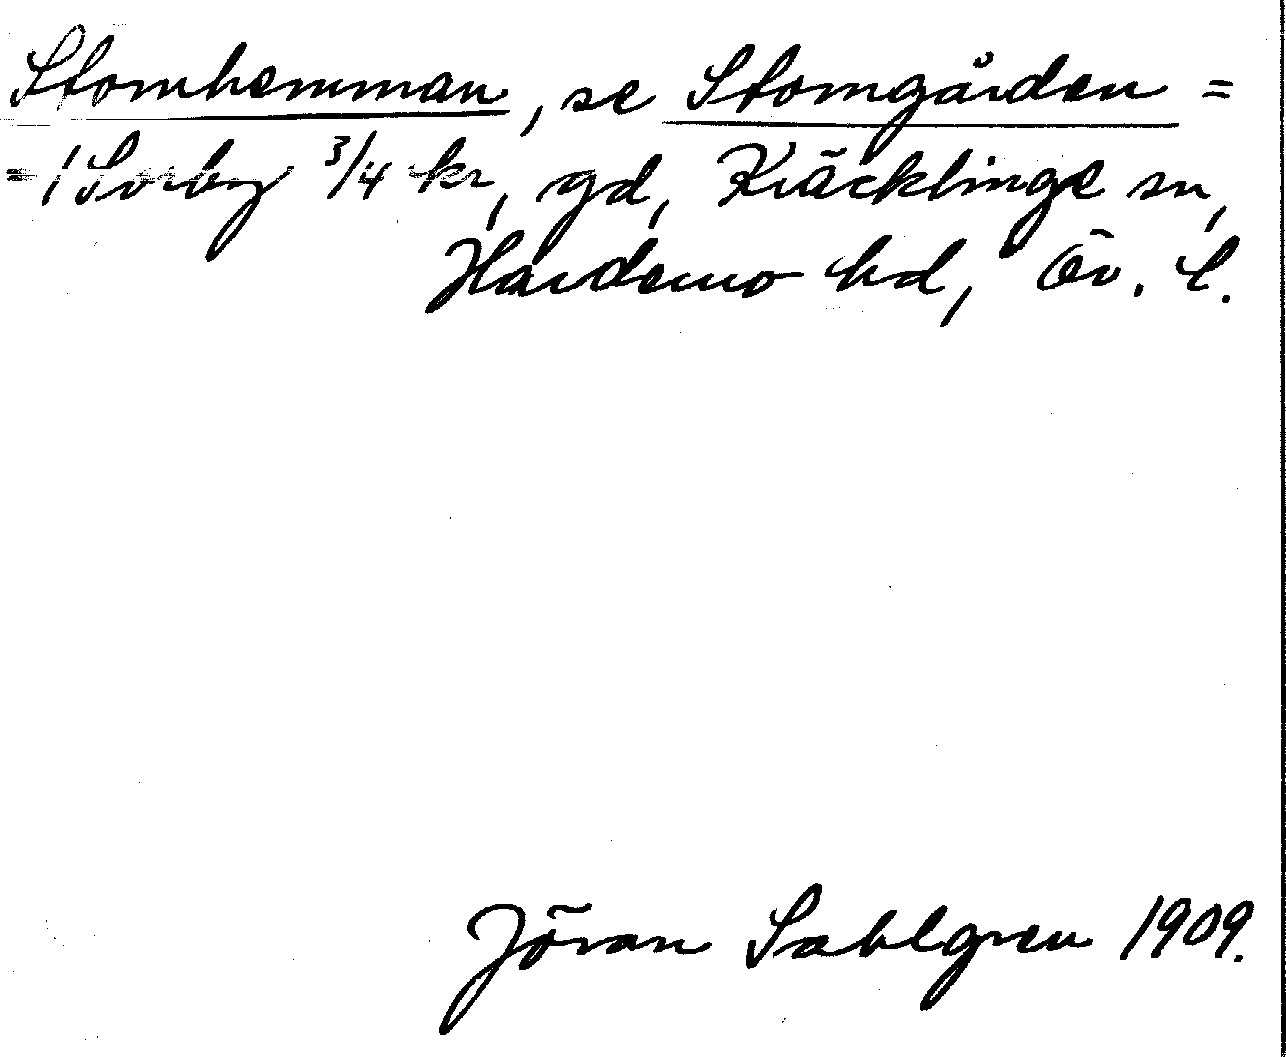 Stomhemman, se Stomgården =
= 1 Sörby 3/4 kr, gd, Kräcklinge sn,
Hardemo hd, Ör. l.
Jöran Sahlgren 1909.